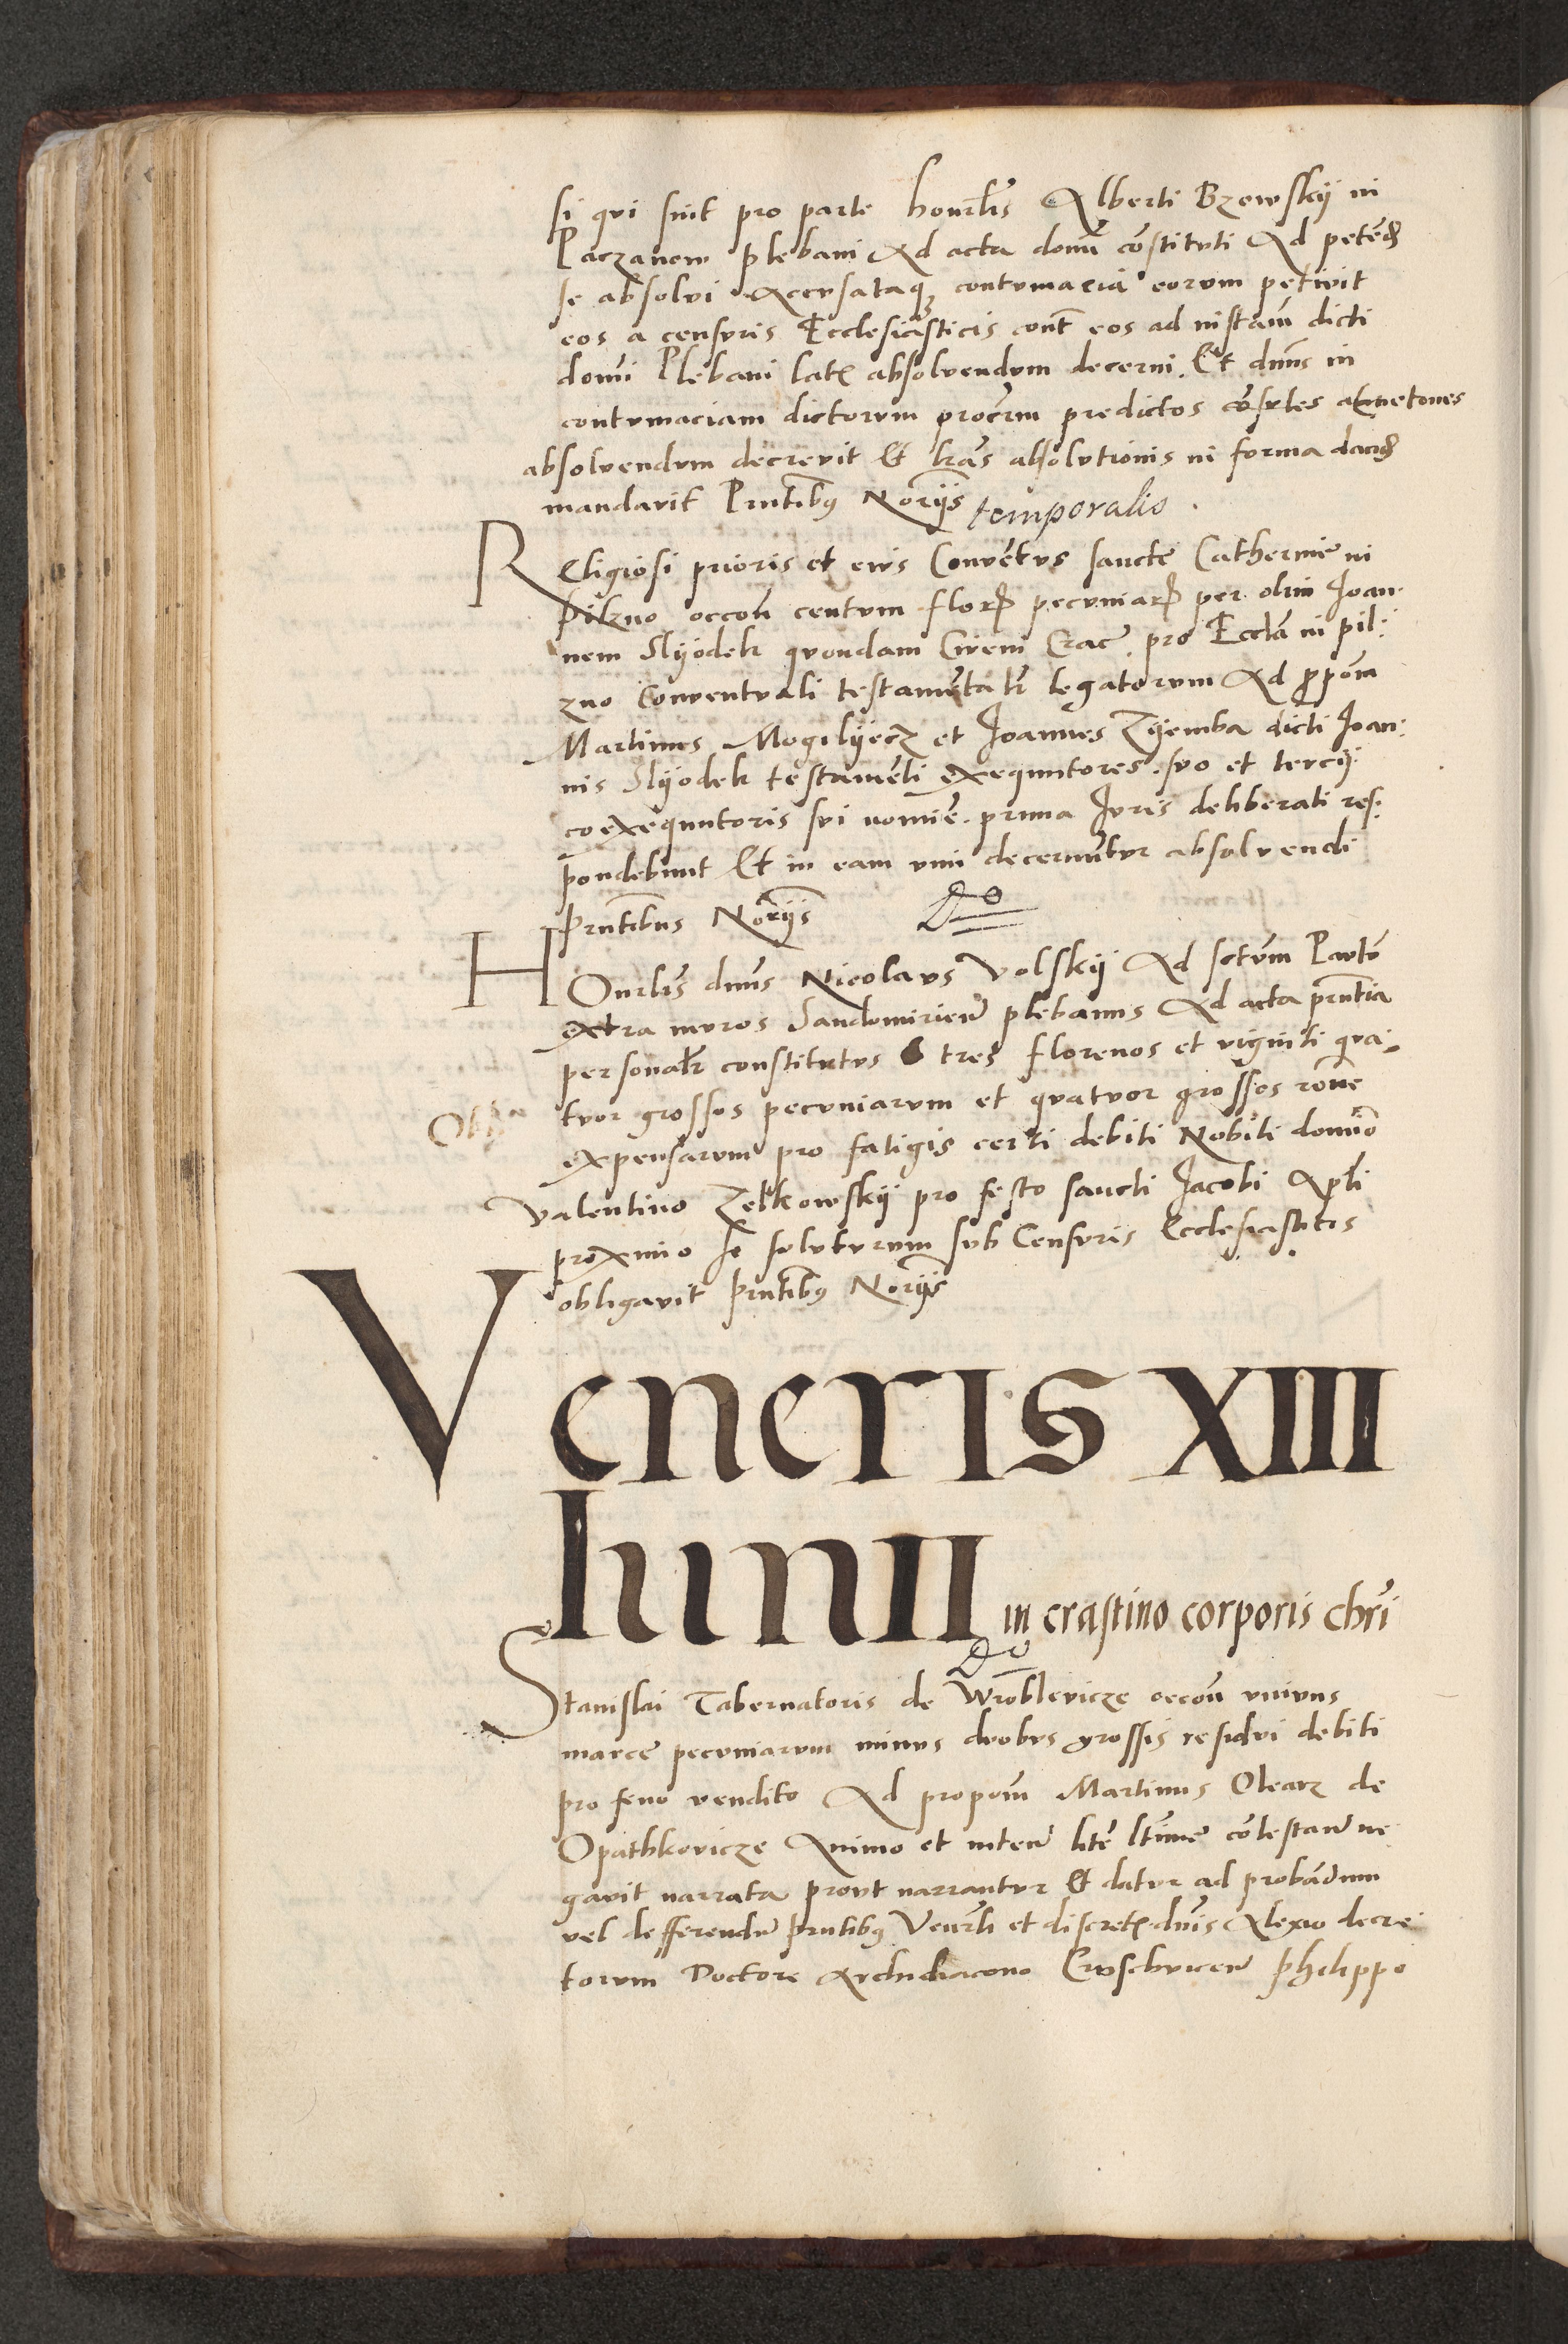 si qui sint pro parte honrlis Alberti Bzowskij in
Paczanow plebani Ad acta domi constituti Ad petend
se absolui Accusataq contumacia eorum petivit
eos a censuris Ecclesiasticis cont eos ad instam dicti
domi Plebani latis absoluendum decerni. Et dnus in
contumaciam dictorum procrum predictos consules actmetones
absoluendum decrevit Et lras absolutionis in forma dand
mandavit Prntibus Norijs temporalis.
REligiosi prioris et eius Conventus sancte Catherine in
pilzno occon centum flor pecuniar per olim Joan
nem Slyodek quondam Civem Crac. pro Eccla in pil:
zno Conventuali testamentalr legatorum Ad propom
Martinus Mogilyecz et Joannes Zyemba dicti Joan:
nis Slyodek testamenti exequutores. suo et tercij
coexequutoris sui nomie. prima Juris deliberati res:
pondebunt Et in eam vim decernuntur absoluendi
prntibus Norijs
Do
HOnrlis dnus Nicolaus Volskij Ad sctum Paulu
extra muros Sandomirien plebanus Ad acta prntia
personalr constitutus tres florenos et viginti qua
Obla
tuor grossos pecuniarum et quatuor grossos rone
expensarum pro fatigis certi debiti Nobili domino
Valentino Zelkowskij pro festo sancti Jacobi Apli
proximo se soluturum sub Censuris Ecclesiasticis
obligavit prntibus Norijs
Veneris XIII
Iunii in crastino corporis chri
Do
Stanislai Tabernatoris de Wroblevicze occon unius
marce pecuniarum minus duobus grossis residui debiti
pro feno vendito Ad propom Martinus Olearz de
Opathkovicze Animo et inten lite ltime contestan ne
gavit narrata prout narrantur Et datur ad probandum
vel defferendu prntibus Venrli et discretis dnis Alexio decre
torum Doctore Archidiacono Crusvicien Philippo